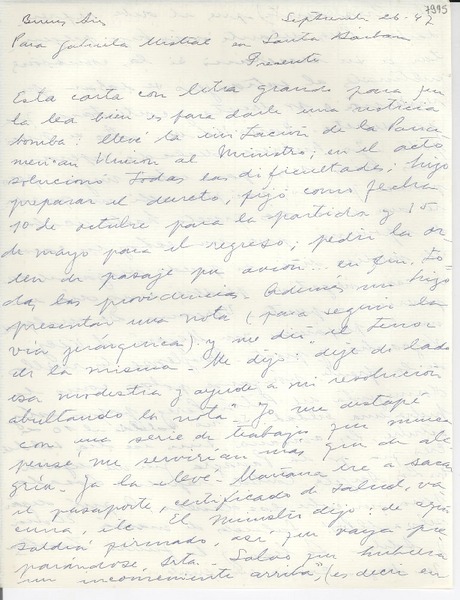 7995
Buenos Aires Septiembre 26-47
Para Gabriela Mistral en Santa Barbara
Presente
Esta carta con letra grande para que
la lea bien es para darle una noticia
bomba: llevé la invitación de la Pana
merican Union al Ministro; en el acto
solucionó todas las dificultades; hizo
preparar el decreto, fijó como fecha
10 de octubre para la partida y 15
de mayo para el regreso; pedir la or-
den de pasaje por avión... en fin. To-
das las providencias. Además me hizo
presentar una nota (para seguir la
vía jerárquica) y me dió el tenor
de la misma. Me dijo: "deje de lado
esa modestia y ayude a mi resolución
abultando la nota". Yo me destapé
con una serie de trabajos que nunca
pensé me servirían más que de ale
gría. Ya la llevé. Mañana iré a sacar
el pasaporte, certificado de salud, va
cuna, etc. El Ministro dijo: de aquí
saldrá firmado, así que vaya pre
parándose, Srta. Salvo que hubiera
un inconveniente arriba", (es decir en